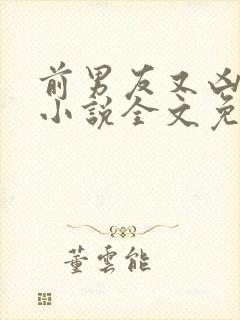 前男友又凶
小說全文免
董雲能